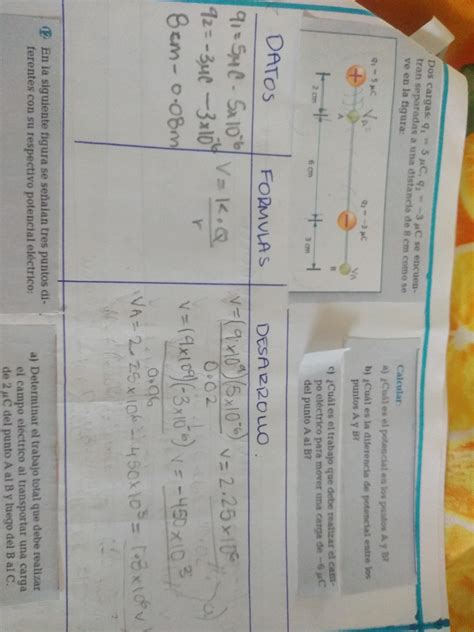 Dos cargas: q₁ = 5 μC, q₂ = −3 μC se encuen-
tran separadas a una distancia de 8 cm como se
ve en la figura:
q₁ = 5 μC
q₂ = −3 μC
A
B
VA
2 cm
6 cm
3 cm
Calcular:
a) ¿Cuál es el potencial en los puntos A y B?
b) ¿Cuál es la diferencia de potencial entre los
puntos A y B?
c) ¿Cuál es el trabajo que debe realizar el cam-
po eléctrico para mover una carga de −6 μC
del punto A al B?
DATOS
q₁ = 5μC - 5x10⁻⁶
q₂ = -3μC - 3x10⁻⁶
8cm - 0.08m
FORMULAS
V = K.Q
r
DESARROLLO.
V = (9x10⁹)(5x10⁻⁶) V = 2.25x10⁶
0.02
V = (9x10⁹)(-3x10⁻⁶) V = -450x10³
0.06
VA = 2.25x10⁶ - 450x10³ = 1.8x10⁶ V
a)
12. En la siguiente figura se señalan tres puntos di-
ferentes con su respectivo potencial eléctrico:
a) Determinar el trabajo total que debe realizar
el campo eléctrico al transportar una carga
de 2 μC del punto A al B y luego del B al C.